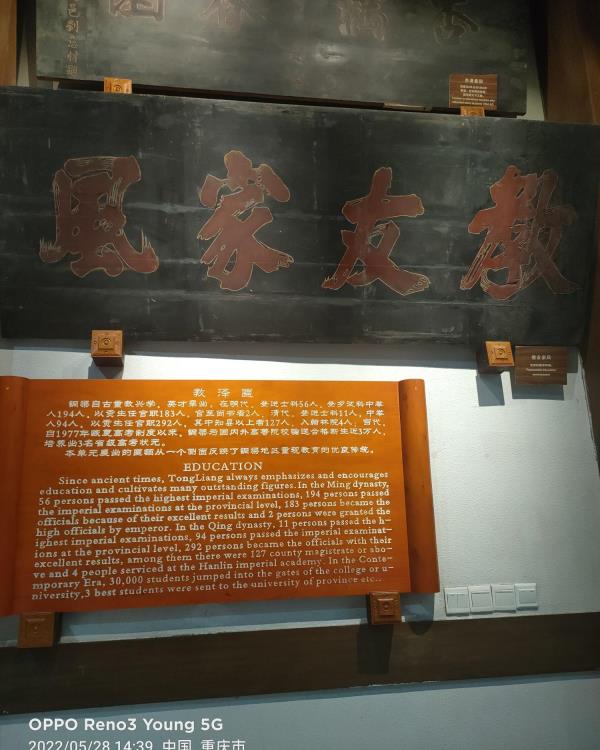 教友家風
教泽匾
铜梁自古重教兴学，英才辈出，在明代，登进士科56人，登乡试科中举
人194人，以贡生任官职183人，官至尚书者2人；清代，登进士科11人，中举
人94人，以贡生任官职292人，其中知县以上者127人，入翰林院4人；当代，
自1977年恢复高考制度以来，铜梁为国内外高等院校输送合格新生近3万人，
培养出3名省级高考状元。
本单元展出的匾额从一个侧面反映了铜梁地区重视教育的优良传统。
EDUCATION
Since ancient times, TongLiang always emphasizes and encourages
education and cultivates many outstanding figures.In the Ming dynasty,
56 persons passed the highest imperial examinations, 194 persons passed
the imperial examinations at the provincial level, 183 persons became the
officials because of their excellent results and 2 persons were granted the
high officials by emperor. In the Qing dynasty, 11 persons passed the h-
ighest imperial examinations, 94 persons passed the imperial examinat-
ions at the provincial level, 292 persons became the officials with their
excellent results, among them there were 127 county magistrate or abo-
ve and 4 people serviced at the Hanlin imperial academy. In the Conte-
mporary Era, 30,000 students jumped into the gates of the college or u-
niversity,3 best students were sent to the university of province etc..
OPPO Reno3 Young 5G
2022/05/28 14:39 中国 重庆市